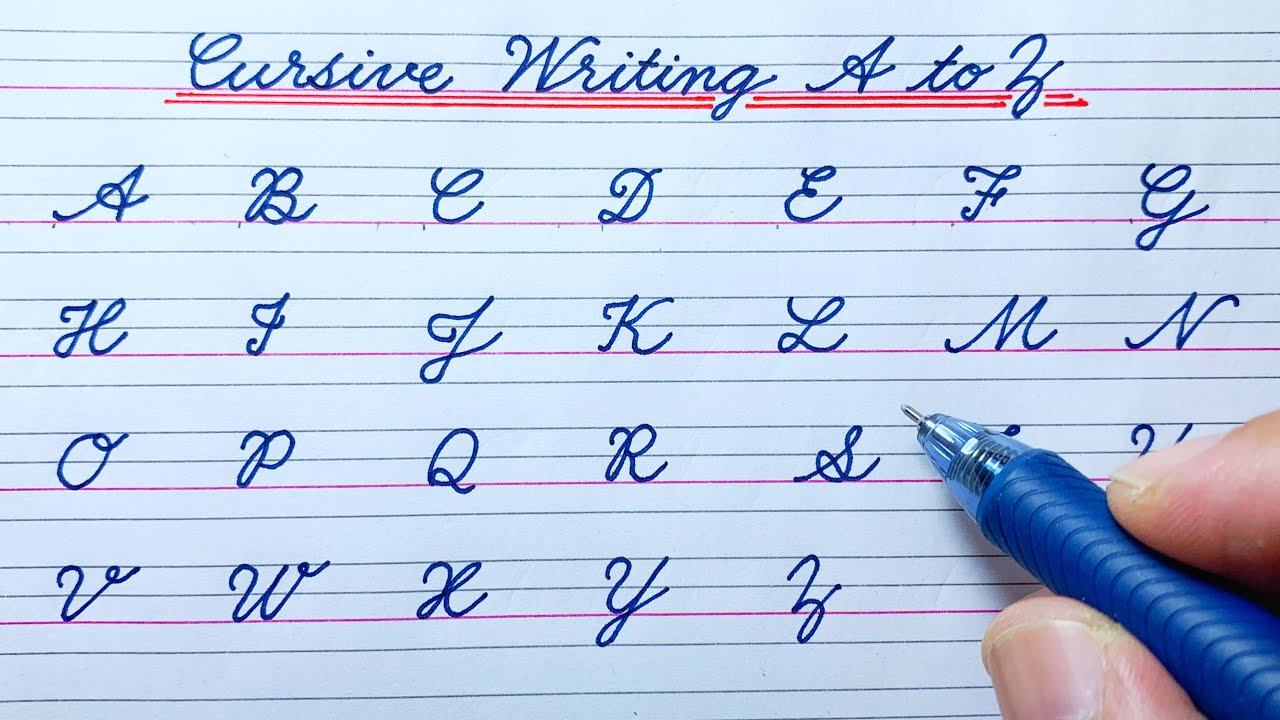 Cursive Writing A to Z
A B C D E F G
H I J K L M N
O P Q R S
V W X Y Z